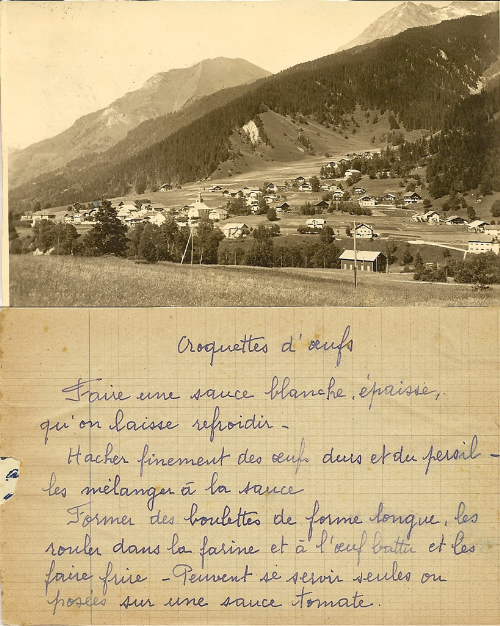 Croquettes d'œufs
Faire une sauce blanche, épaisse,
qu'on laisse refroidir -
Hacher finement des œufs durs et du persil -
les mélanger à la sauce
Former des boulettes de forme longue, les
rouler dans la farine et à l'œuf battu et les
faire frire - Peuvent se servir seules ou
posées sur une sauce tomate.